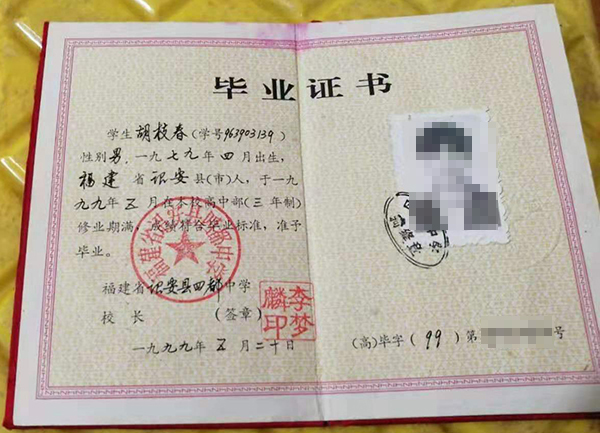 毕业证书
学生胡枝春(学号963903139)
性别男,一九七九年四月出生,
福建省诏安县(市)人,于一九
九九年五月在本校高中部(三年制)
修业期满,成绩符合毕业标准,准予
毕业。
福建省诏安县四都中学
校长(签章)
李梦麟印
一九九九年五月二十日
(高)毕字(99)第 号